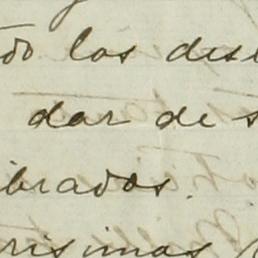 do los des
dar de s
brados.
risimos